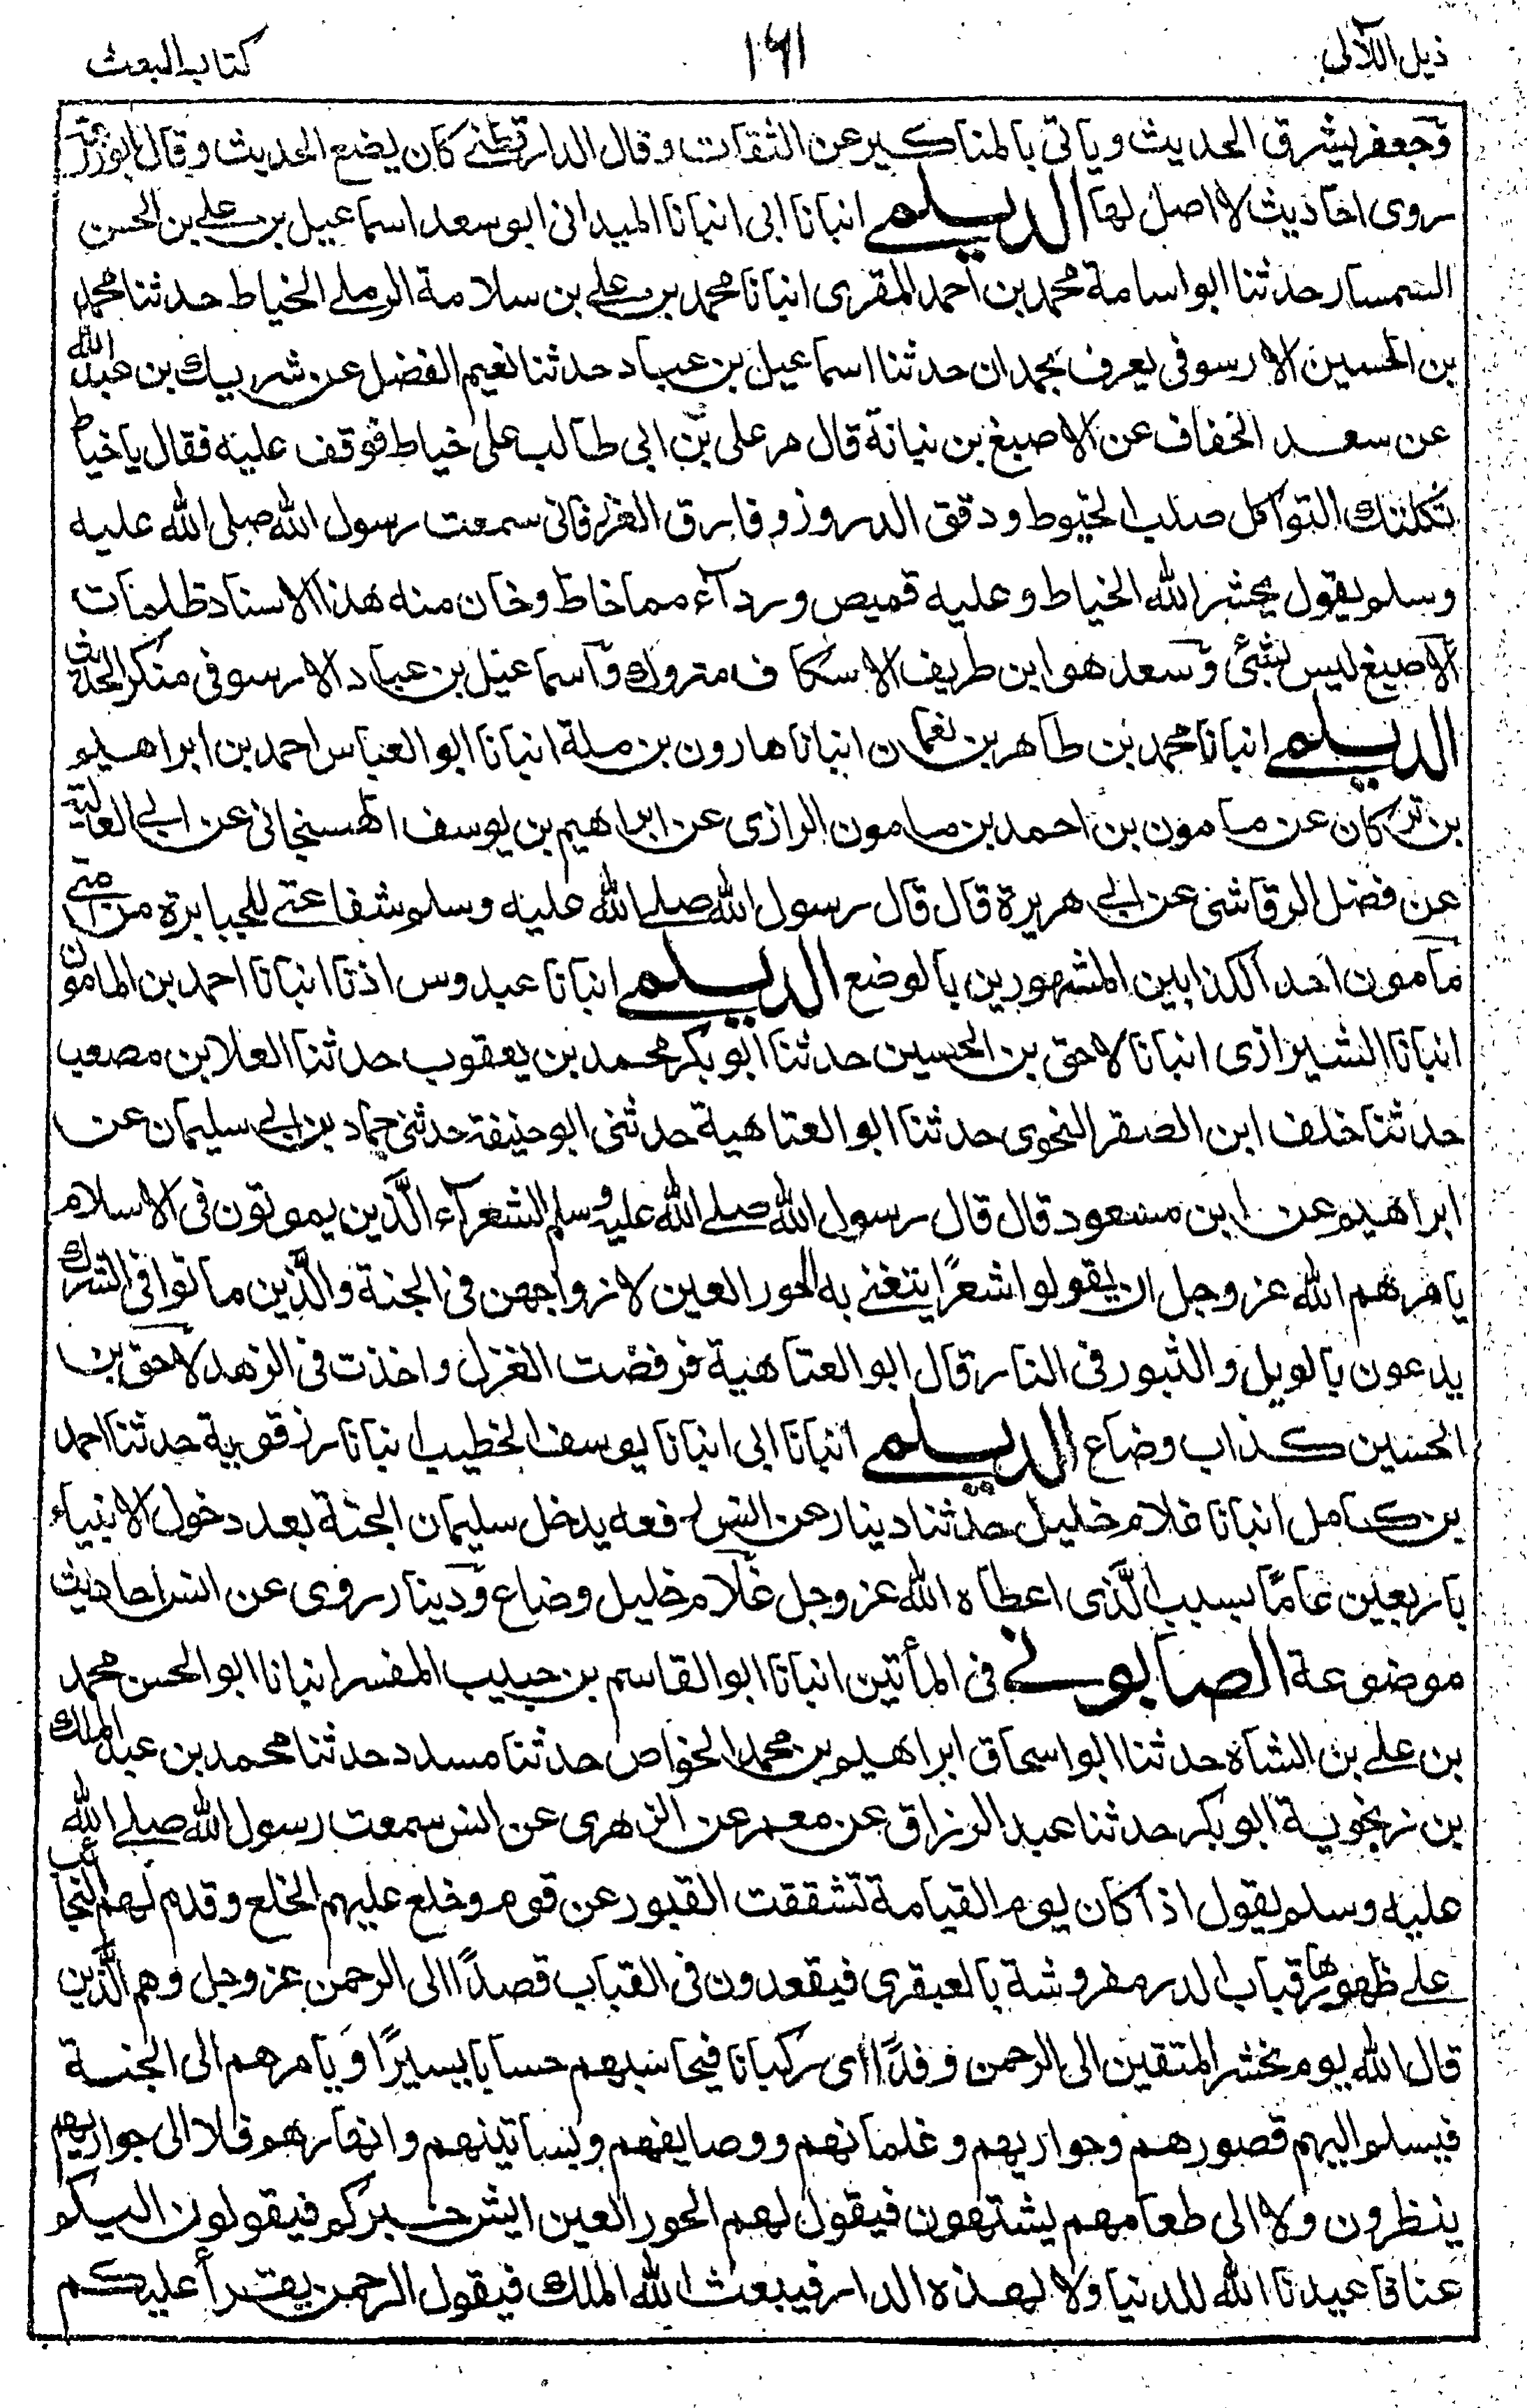 ذيل اللآلى ١٦١ كتاب البعث
وجعفر يشرق الحديث وياتى بالمناكير عن الثقات وقال الدارقطنے كان يضع الحديث وقال ابوزرعة
روى احاديث لا اصل لها الديلمے انبانا ابى انبانا الميدانى ابو سعد اسماعيل بن علے بن الحسن
السمسار حدثنا ابو اسامة محمد بن احمد المقرى انبانا محمد بن علے بن سلامة الرملے الخياط حدثنا محمد
بن الحسين الارسوفى يعرف بحمدان حدثنا اسماعيل بن عباد حدثنا نعيم الفضل عن شريك بن عبد الله
عن سعد الخفاف عن الاصبغ بن نباتة قال مر على بن ابى طالب على خياط فوقف عليه فقال يا خياط
ثكلتك الثواكل صلب الخيوط ودقق الدروز وقارق الغرز فانى سمعت رسول الله صلى الله عليه
وسلم يقول يحشر الله الخياط وعليه قميص ورداء مما خاط وخان منه هذا الاسناد ظلمات
الاصبغ ليس بشئ وسعد هو ابن طريف الاسكاف متروك واسماعيل بن عباد الارسوفى منكر الحديث
الديلمے انبانا محمد بن طاهر بن نعمان انبانا هارون بن ملة انبانا ابو العباس احمد بن ابراهيم
بن تركان عن مامون بن احمد بن مامون الرازى عن ابراهيم بن يوسف الهسنجانى عن ابے العالية
عن فضل الرقاشى عن ابے هريرة قال قال رسول الله صلے الله عليه وسلم شفاعتے للجبابرة من امتے
مامون احد الكذابين المشهورين بالوضع الديلمے انبانا عبدوس اذنا انبانا احمد بن المامون
انبانا الشيرازى انبانا لاحق بن الحسين حدثنا ابو بكر محمد بن يعقوب حدثنا العلا بن مصعب
حدثنا خلف ابن الصقر النحوى حدثنا ابو العتاهية حدثنى ابو حنيفة حدثنى حماد بن ابے سليمان عن
ابراهيم عن ابن مسعود قال قال رسول الله صلے الله عليه وسلم الشعراء الّذين يموتون فى الاسلام
يامرهم الله عز وجل ان يقولوا شعرًا يتغنے به الحور العين لازواجهن فى الجنة والّذين ماتوا فى الشرك
يدعون بالويل والثبور فى النار قال ابو العتاهية فرفضت الغزل واخذت فى الزهد لاحق بن
الحسين كذاب وضاع الديلمے انبانا ابى انبانا يوسف الخطيب انبانا رزقوية حدثنا احمد
بن كامل انبانا غلام خليل حدثنا دينار عن انس رفعه يدخل سليمان الجنة بعد دخول الانبياء
باربعين عامًا بسبب الّذى اعطاه الله عز وجل غلام خليل وضاع ودينار روى عن انس احاديث
موضوعة الصابونے فى المأتين انبانا ابو القاسم بن حبيب المفسر انبانا ابو الحسن محمد
بن علے بن الشاه حدثنا ابو اسحاق ابراهيم بن محمد الخواص حدثنا مسدد حدثنا محمد بن عبد الملك
بن زنجوية ابو بكر حدثنا عبد الرزاق عن معمر عن الزهرى عن انس سمعت رسول الله صلے الله
عليه وسلم يقول اذا كان يوم القيامة تشققت القبور عن قوم وخلع عليهم الخلع وقدم لهم النجائب
علے ظهورها قباب الدر مفروشة بالعبقرى فيقعدون فى القباب قصدًا الى الرحمن عز وجل وهم الّذين
قال الله يوم نحشر المتقين الى الرحمن وفدًا اى ركبانا فيحاسبهم حسابا يسيرًا ويامرهم الى الجنة
فيسلموا اليهم قصورهم وجواريهم وغلمانهم ووصايفهم وبساتينهم وانهارهم فلا الى جواريهم
ينظرون ولا الى طعامهم يشتهون فيقول لهم الحور العين ايش خبركم فيقولون اليكم
عنا فما عبدنا الله للدنيا ولا لهذه الدار فيبعث الله الملك فيقول الرحمن يقرأ عليكم